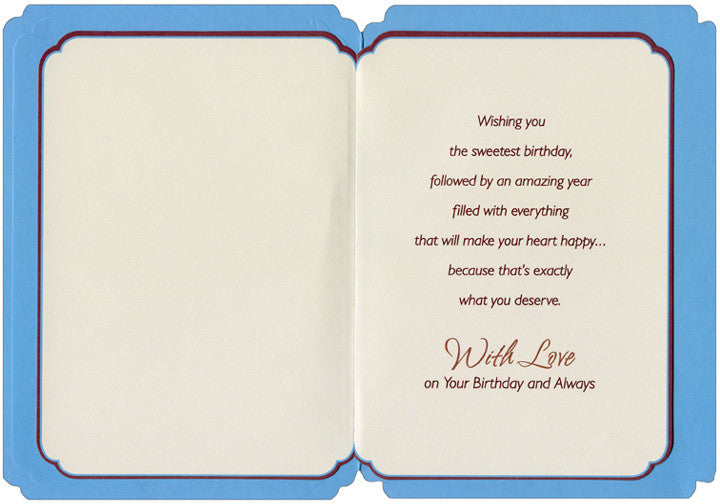 Wishing you
the sweetest birthday,
followed by an amazing year
filled with everything
that will make your heart happy...
because that's exactly
what you deserve.
With Love
on Your Birthday and Always